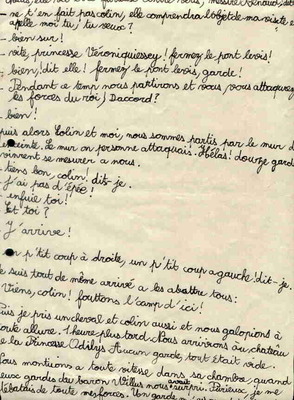 ne t'en fait pas colin, elle comprendra l'objet de ma visite e
appelle moi tu, tu veux ?
- bien sur !
- vite, princesse Véroniquiessey ! fermez le pont levis !
- bien, dit elle ! fermez le pont levis, garde !
- Pendant ce temp nous partirons et vous, vous attaquerez
les forces du roi, Daccord ?
- bien !
puis alors Colin et moi, nous sommes partis par le mur d
enceinte. Le mur en personne attaquait. Hélas ! douze gard
vinrent se mesurer a nous.
- tiens bon, colin ! dit-je.
J'ai pas d'épée !
- enfuie toi !
- Et toi ?
- J'arrive !
n p'tit coup à droite, un p'tit coup a gauche ! dit-je.
e suis tout de même arrivé a les abattre tous :
Viens, colin ! fouttons l'camp d'ici !
Puis je pris un cheval et colin aussi et nous galopions à
toute allure. 1 heure plus tard. Nous arrivions au château
e la Princesse Odilys. Aucun garde, tout était vide.
Nous montions a toute vitesse dans sa chambre, quand
eux gardes du baron Villus nous avait surpri. Furieux, je me
debatais de toute mes forces. Un garde